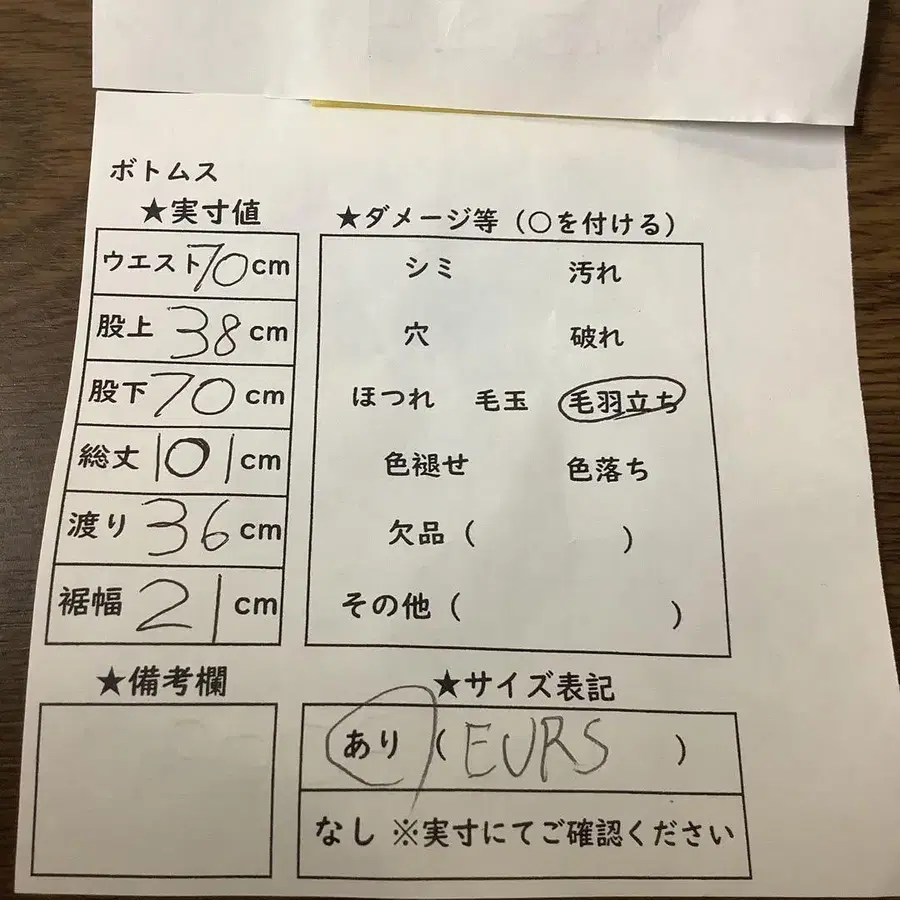 ボトムス
★実寸値
ウエスト70cm
股上 38 cm
股下 70 cm
総丈 101 cm
渡り 36 cm
裾幅 21 cm
★ダメージ等（○を付ける）
シミ 汚れ
穴 破れ
ほつれ 毛玉 毛羽立ち
色褪せ 色落ち
欠品（ ）
その他（ ）
★備考欄
★サイズ表記
あり（EURS ）
なし ※実寸にてご確認ください